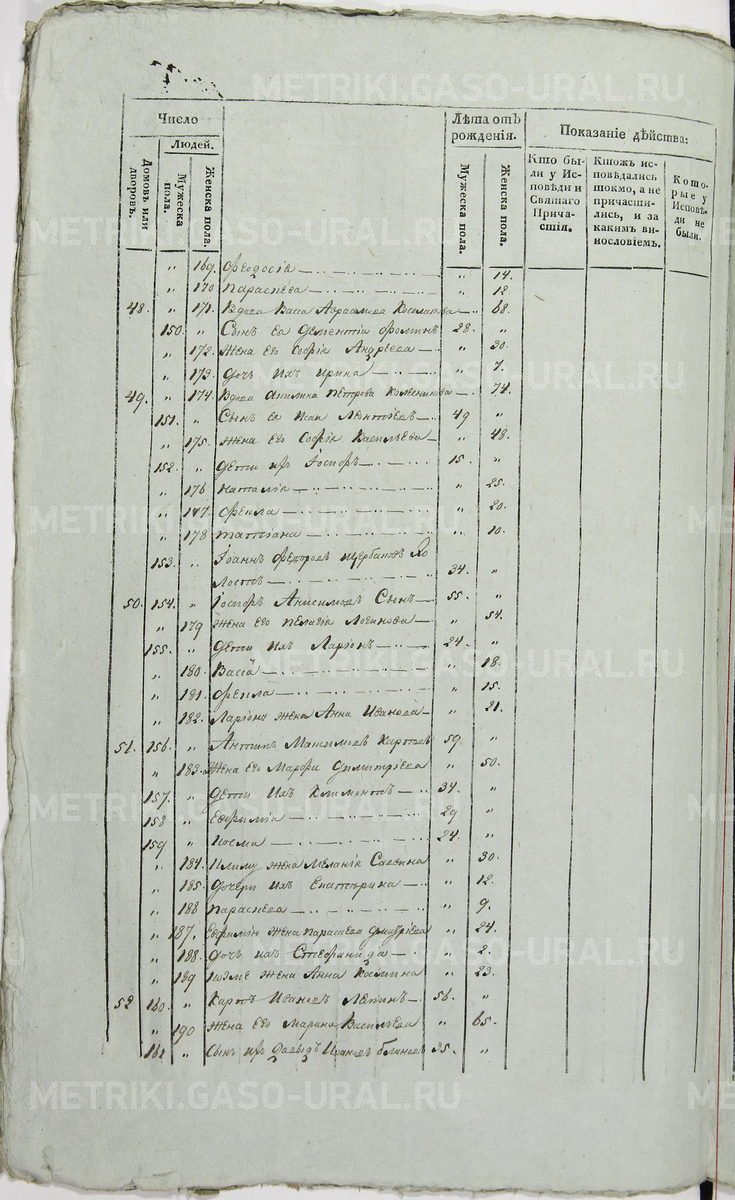 METRIKI.GASO-URAL.RU
Число
Людей.
Домовъ или дворовъ.
Мужеска пола.
Женска пола.
Лѣта отъ рожденія.
Мужеска пола.
Женска пола.
Показаніе дѣйства:
Кто бы-
ли у Ис-
повѣди и
Святаго
Прича-
стія.
Ктожъ ис-
повѣдались
токмо, а не
причасти-
лись, и за
какимъ ви-
нословіемъ.
Кото-
рые у
Исповѣ-
ди не
были.
" 169. Феодосія " 14.
" 170 Параскева " 12
48. " 171. Вдова Васса " 68.
150. " Сынъ ея Дементій Фоминъ 28. "
" 172. Жена его Софія Андреева " 30.
" 173. Дочь ихъ Ирина " 7.
49. " 174. Вдова Петрова " 74.
151. " Сынъ ея Исаи Леонтіевъ 49 "
" 175. Жена его Софія Васильева " 48.
152. " Дети их Іосифъ 15. "
" 176 Наталія " 25.
" 177. Фекла " 20.
" 178 Татіана " 10.
153. " Іоаннъ Федоровъ Щербаковъ Хо
лостъ 34. "
50. 154. " Іосифъ Анисимовъ Сынъ 55. "
" 179 Жена его Пелагія Логинова " 54.
155. " Дети ихъ Ларіонъ 24. "
" 180. Васса " 18.
" 181. Фекла " 15.
" 182. Ларіону жена Анна Иванова " 21.
51. 156. " Антипъ Максимовъ 59 "
" 183. Жена его Марфа Димитріева " 50.
157. " Дети ихъ Климонтъ 34. "
158 " Ефримій 29 "
159 " Косма 24. "
" 184. жена Меланія Саввина " 30.
" 185. Дочери ихъ Екатерина " 12.
" 186 Параскева " 9.
" 187. Ефримію жена Параскева " 24.
" 188. Дочь ихъ Стефанида " 2.
" 189 Козме жена Анна " 23.
52 160. " Карпъ Ивановъ 56. "
" 190 Жена его Марина Васильева " 65.
161 " Сынъ их Давыдъ Ивановъ 35. "